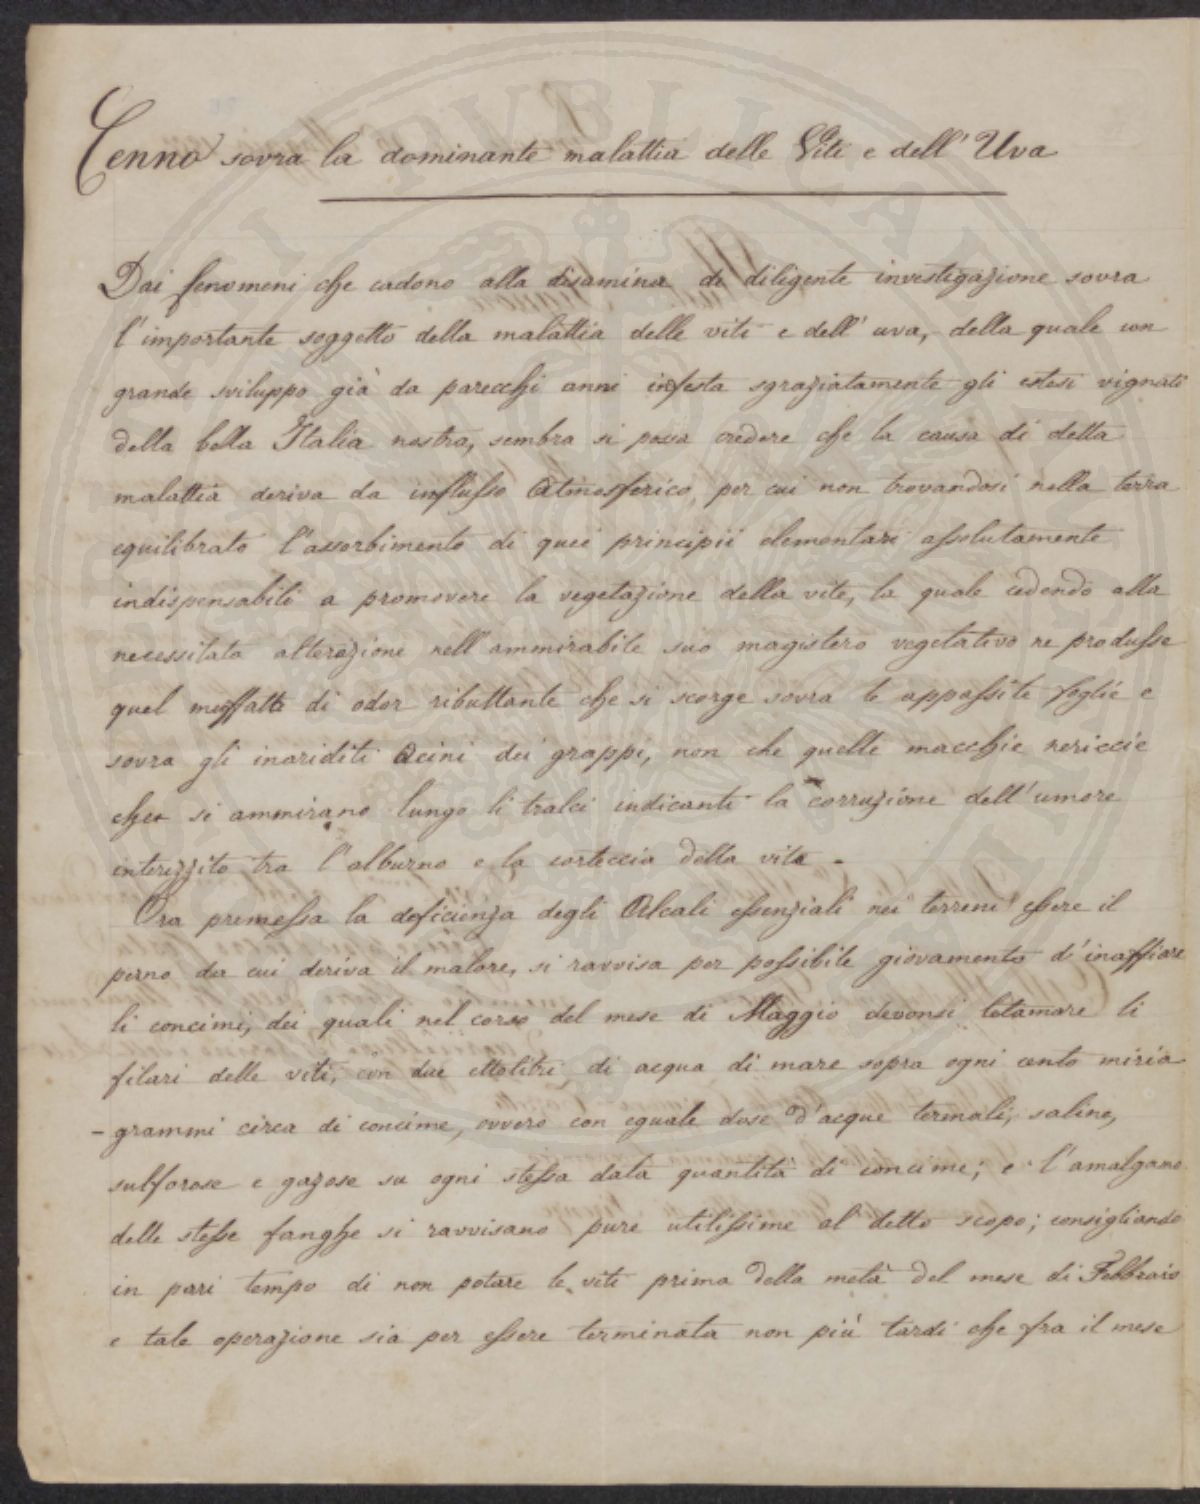 Cenno sovra la dominante malattia delle Viti e dell'Uva
Dai fenomeni che cadono alla disamina di diligente investigazione sovra
l'importante soggetto della malattia delle viti e dell'uva, della quale con
grande sviluppo già da parecchi anni infesta sgraziatamente gli estesi vignati
della bella Italia nostra, sembra si possa credere che la causa di detta
malattia deriva da influsso Atmosferico, per cui non trovandosi nella terra
equilibrato l'assorbimento di quei principii elementari assolutamente
indispensabili a promovere la vegetazione della vite, la quale cedendo alla
necessitata alterazione nell'ammirabile suo magistero vegetativo ne produsse
quel muffatto di odor ributtante che si scorge sovra le appassite foglie e
sovra gli inariditi Acini dei grappi, non che quelle macchie nericcie
che si ammirano lungo li tralci indicanti la corruzione dell'umore
interizzito tra l'alburno e la corteccia della vite -
Ora premessa la deficienza degli Alcali essenziali nei terreni essere il
perno da cui deriva il malore, si ravvisa per possibile giovamento d'inaffiare
li concimi, dei quali nel corso del mese di Maggio devonsi letamare li
filari delle viti, con due ettolitri di acqua di mare sopra ogni cento miria
-grammi circa di concime, ovvero con eguale dose d'acque termali, saline,
sulforose e gazose su ogni stessa data quantità di concime; e l'amalgama
delle stesse fanghe si ravvisano pure utilissime al detto scopo; consigliando
in pari tempo di non potare le viti prima della metà del mese di Febbraio
e tale operazione sia per essere terminata non più tardi che fra il mese